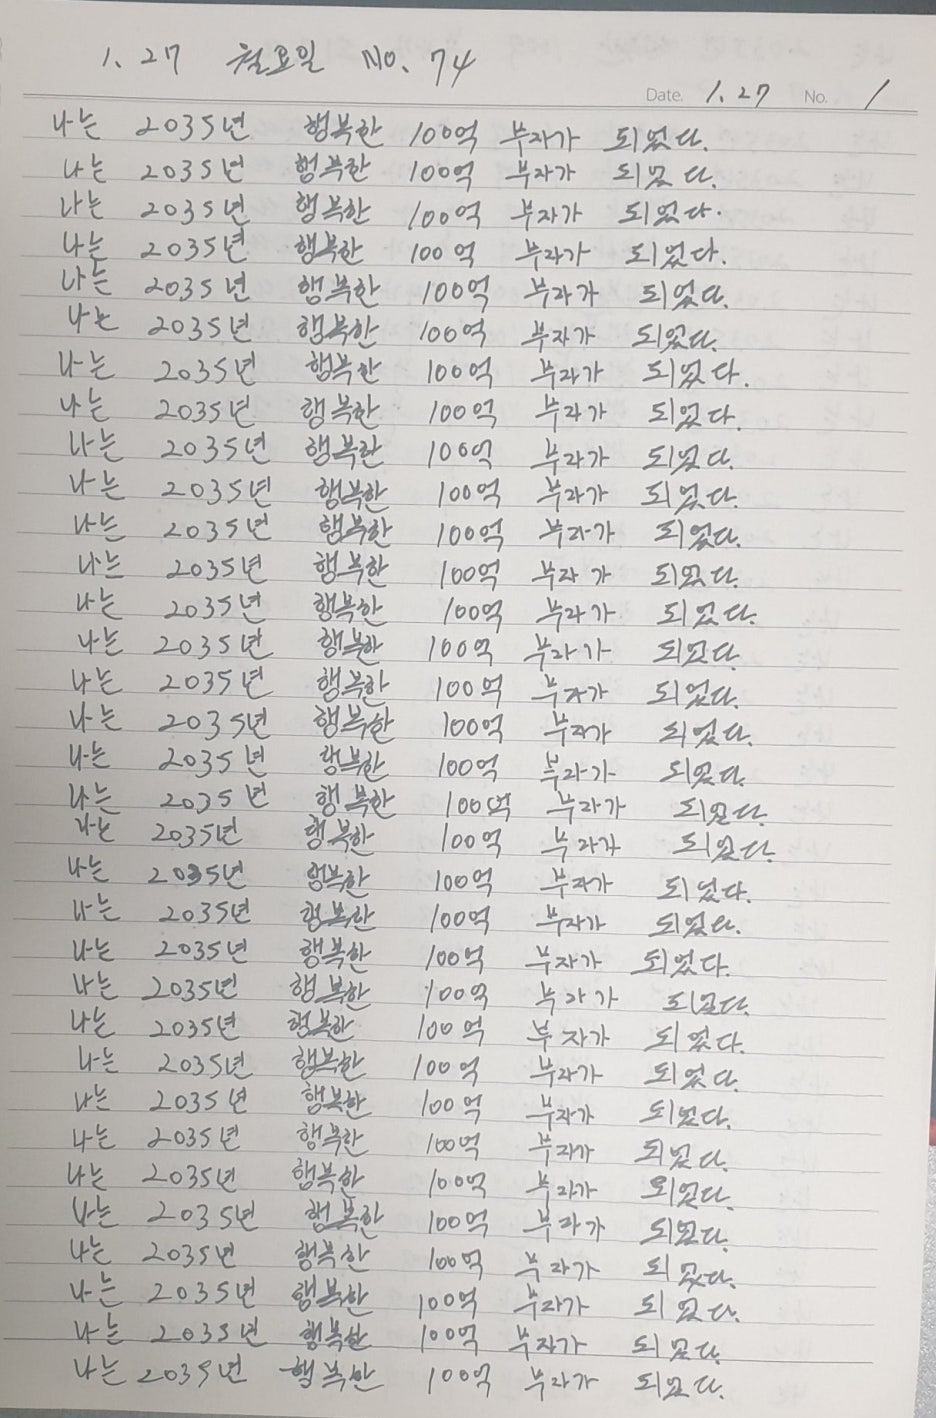 1. 27 월요일 No. 74
Date. 1. 27 No. 1
나는 2035년 행복한 100억 부자가 되었다.
나는 2035년 행복한 100억 부자가 되었다.
나는 2035년 행복한 100억 부자가 되었다.
나는 2035년 행복한 100억 부자가 되었다.
나는 2035년 행복한 100억 부자가 되었다.
나는 2035년 행복한 100억 부자가 되었다.
나는 2035년 행복한 100억 부자가 되었다.
나는 2035년 행복한 100억 부자가 되었다.
나는 2035년 행복한 100억 부자가 되었다.
나는 2035년 행복한 100억 부자가 되었다.
나는 2035년 행복한 100억 부자가 되었다.
나는 2035년 행복한 100억 부자가 되었다.
나는 2035년 행복한 100억 부자가 되었다.
나는 2035년 행복한 100억 부자가 되었다.
나는 2035년 행복한 100억 부자가 되었다.
나는 2035년 행복한 100억 부자가 되었다.
나는 2035년 행복한 100억 부자가 되었다.
나는 2035년 행복한 100억 부자가 되었다.
나는 2035년 행복한 100억 부자가 되었다.
나는 2035년 행복한 100억 부자가 되었다.
나는 2035년 행복한 100억 부자가 되었다.
나는 2035년 행복한 100억 부자가 되었다.
나는 2035년 행복한 100억 부자가 되었다.
나는 2035년 행복한 100억 부자가 되었다.
나는 2035년 행복한 100억 부자가 되었다.
나는 2035년 행복한 100억 부자가 되었다.
나는 2035년 행복한 100억 부자가 되었다.
나는 2035년 행복한 100억 부자가 되었다.
나는 2035년 행복한 100억 부자가 되었다.
나는 2035년 행복한 100억 부자가 되었다.
나는 2035년 행복한 100억 부자가 되었다.
나는 2035년 행복한 100억 부자가 되었다.
나는 2035년 행복한 100억 부자가 되었다.